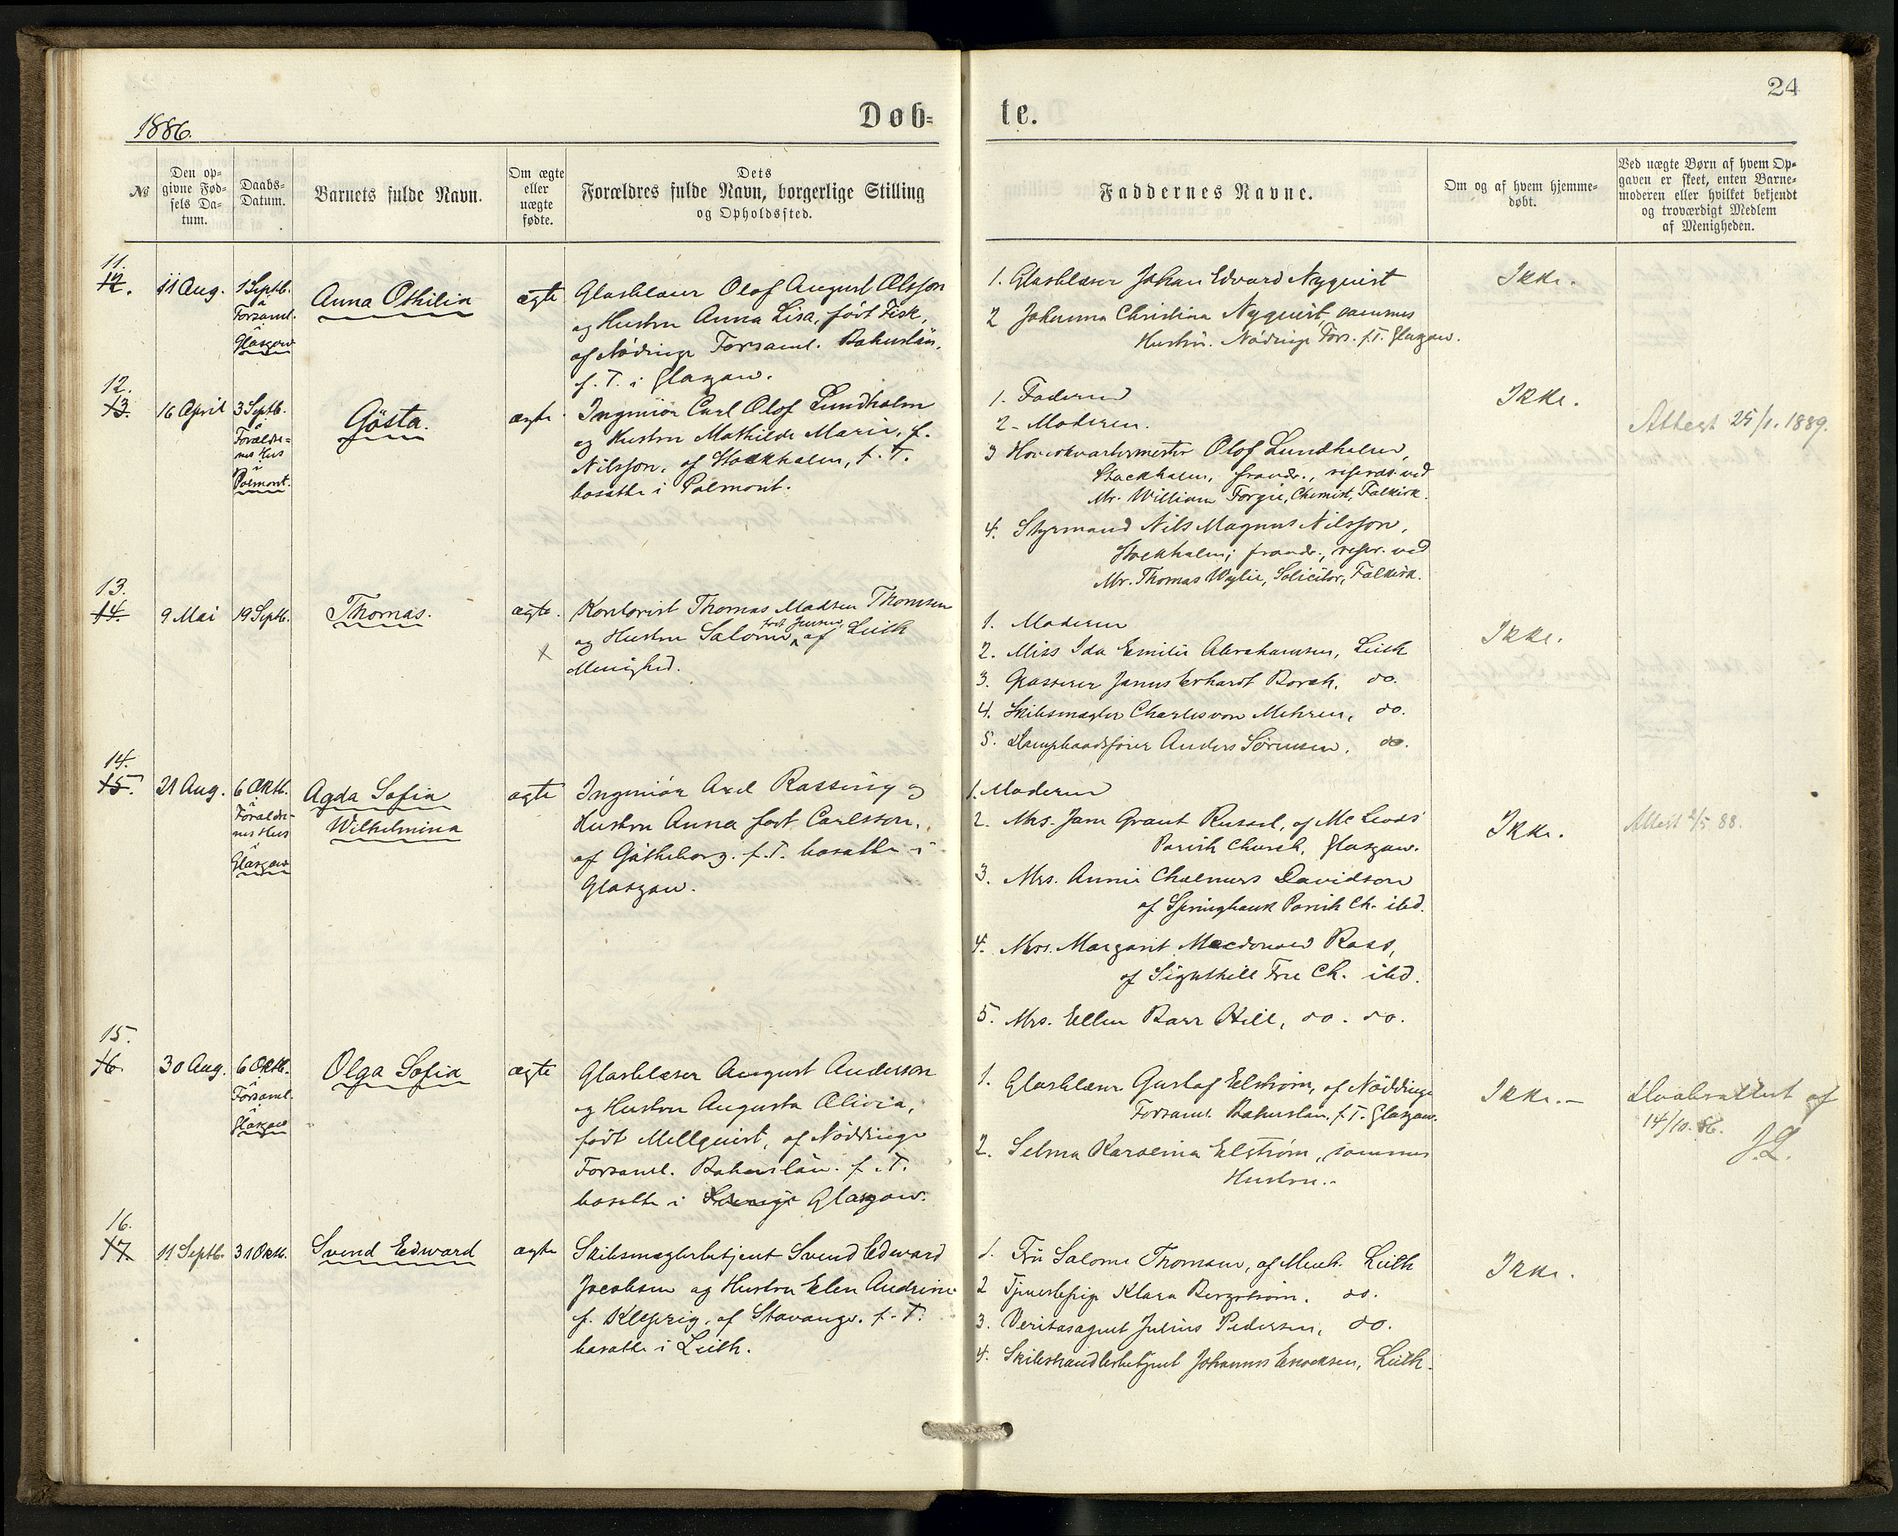 24
1886.
Døb-
te.
№
Den op-
givne Fød-
sels Da-
tum.
Daabs-
Datum.
Barnets fulde Navn.
Om ægte
eller
uægte
fødte.
Dets
Forældres fulde Navn, borgerlige Stilling
og Opholdssted.
Faddernes Navne.
Om og af hvem hjemme-
døbt.
Ved uægte Børn af hvem Op-
gaven er skeet, enten Barne-
moderen eller hvilket bekjendt
og troværdigt Medlem
af Menigheden.
11.
12.
11 Aug.
1 Septb.
å
Forsaml.
i
Glasgow
Anna Othilia
ægte
Glasblæser Olof August Olsson
og Hustru Anna Lisa, født Fisk,
af Nödinge Forsaml. Bohuslän,
f. T. i Glasgow.
1. Glasblæser Johan Edvard Nyquist
2 Johanna Christina Nyquist, sammes
Hustru. Nödinge Fors. f. T. Glasgow.
Ikke.
12.
13.
16 April
3 Septb.
å
Forældre-
nes Hus
i
Polmont.
Gösta.
ægte.
Ingeniör Carl Olof Lundholm
og Hustru Mathilde Maria, f.
Nilsson, af Stockholm, f. T.
bosatte i Polmont.
1. Faderen
2. Moderen.
3 Hovedkvartermester Olof Lundholm,
Stockholm, fravær., repræs. ved
Mr. William Forgie, Chemist, Falkirk.
4. Styrmand Nils Magnus Nilsson,
Stockholm; fravær., repr. ved
Mr. Thomas Wylie, Solicitor, Falkirk.
Ikke.
Attest 25/1. 1889.
13.
14.
9 Mai
19 Septb.
Thomas.
ægte.
Kontorist Thomas Madsen Thomsen
og Hustru Salome født Jensen, af Leith
Menighed.
x
1. Moderen
2. Miss Ida Emilie Abrahamsen, Leith
3. Grosserer Janus Erhardt Borch, do.
4. Skibsmægler Charles von Mehren, do.
5. Dampbaadsfører Anders Sørensen, do.
Ikke.
14.
15.
21 Aug.
6 Oktb.
å
Forældre-
nes Hus
i
Glasgow
Agda Sofia
Wilhelmina
ægte
Ingeniör Axel Rassing og
Hustru Anna født Carlsson,
af Götheborg. f. T. bosatte i
Glasgow.
1. Moderen
2. Mrs. Jane Grant Russel, of McLeods'
Parish Church, Glasgow.
3. Mrs. Annie Chalmers Davidson
of Springbank Parish Ch. ibd.
4. Mrs. Margaret Macdonald Ross,
of Sighthill Free Ch. ibd.
5. Mrs. Ellen Barr Hill, do. do.
Ikke.
Attest 2/5 88.
15.
16.
30 Aug.
6 Oktb.
å
Forsaml.
i
Glasgow
Olga Sofia
ægte
Glasblæser August Anderson
og Hustru Augusta Olivia,
født Mellquist, af Nöddinge
Forsaml. Bohuslän. f. T.
bosatte i Glasgow.
1. Glasblæser Gustaf Elström, af Nöddinge
Forsaml. Bohuslän, f. T. Glasgow.
2. Selma Karolina Elström, sammes
Hustru.
Ikke.
Daabsattest af
14/10. 86.
16.
17.
11 Septb.
31 Oktb.
Svend Edward
ægte
Skibsmæglerbetjent Svend Edward
Jacobsen og Hustru Elen Andrine
f. Kleppig, af Stavanger. f. T.
bosatte i Leith.
1. Fru Salome Thomsen, af Menh. Leith
2 Tjenestepige Klara Bergström. do.
3. Veritasagent Julius Pedersen, do.
4. Skibshandlerbetjent Johannes Enocksen, Leith.
Ikke.